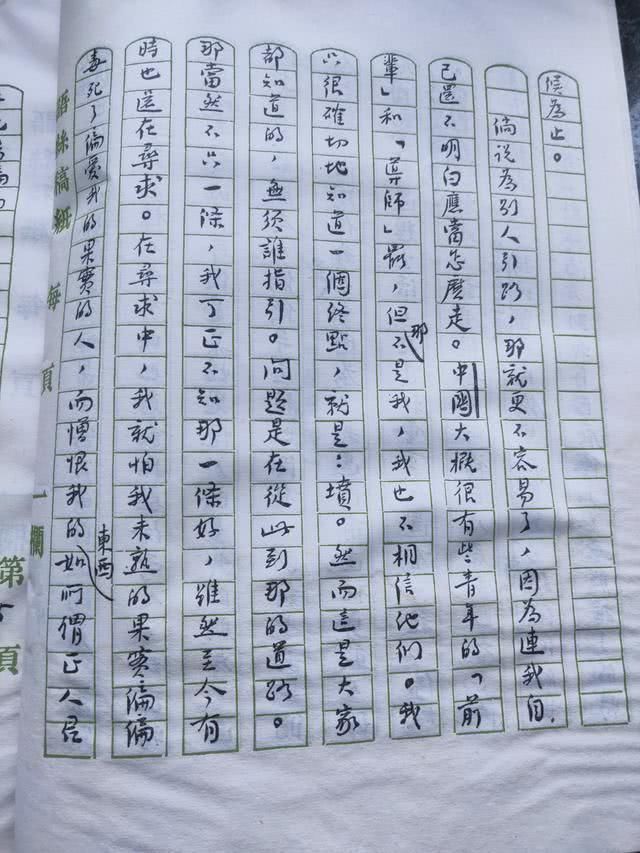 候為止。
倘說為別人引路，那就更不容易了，因為連我自
己還不明白應當怎麼走。中國大概很有些青年的「前
輩」和「導師」罷，但那不是我，我也不相信他們。我
只很確切地知道一個終點，就是：墳。然而這是大家
都知道的，無須誰指引。問題是在從此到那的道路。
那當然不只一條，我可正不知那一條好，雖然至今有
時也還在尋求。在尋求中，我就怕我未熟的果實偏偏
毒死了偏愛我的果實的人，而憎恨我的東西如所謂正人君
語絲稿紙 每頁 一欄
第 頁